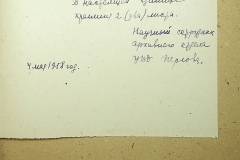 В настоящем
хранится 2 (два) листа.
Научный сотрудник
архивного отдела
4 мая 1958 год.